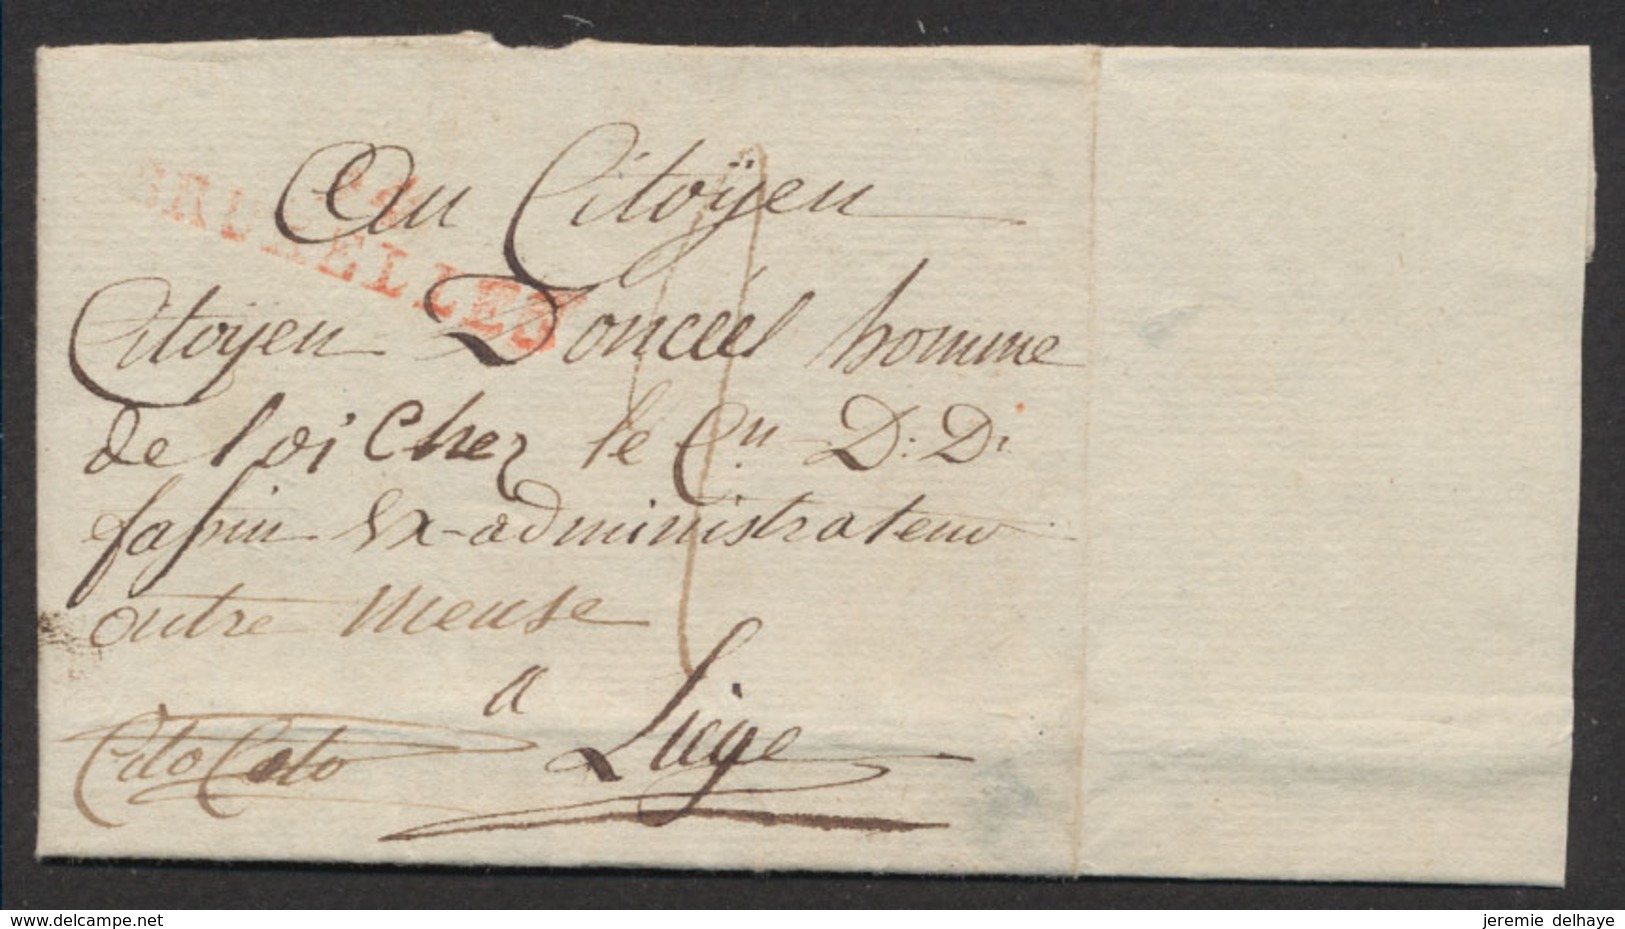 94
BRUXELLES
Au Citoÿen
Citoÿen Doncéel homme
de loi Chez le Cn D: D:
fassin Ex-administrateur
outre Meuse
a Liége
Cito Cito
www.delcampe.net
jeremie delhaye